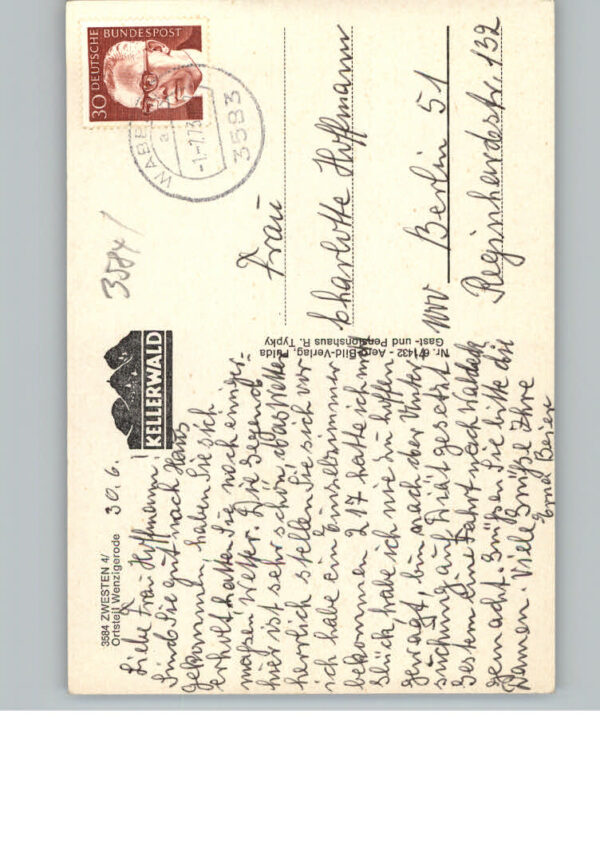 3584 ZWESTEN 4/
Ortsteil Wenzigerode
30.6.
Liebe Frau Hoffmann!
Sind Sie gut nach Haus
gekommen, haben Sie sich
erholt hatten Sie noch einiger-
maßen Wetter. Die Gegend
hier ist sehr schön das Wetter
herrlich stellen Sie sich vor
ich habe ein Einzelzimmer
bekommen 217 hatte ich
Glück habe ich nie zu hoffen
gewagt, bin nach der Unter
suchung auf Diät gesetzt
Gestern eine Fahrt nach Waldeck
gemacht. Grüßen Sie bitte die
Damen. Viele Grüße Ihre
Erna Beier
KELLERWALD
Nr. 671432 - Aero-Bild-Verlag, Fulda
Gast- und Pensionshaus R. Typky
3584/
DEUTSCHE BUNDESPOST
30
WABERN
a
-1.-7.73
3583
Frau
Charlotte Hoffmann
Berlin 51
Reginhardestr. 132